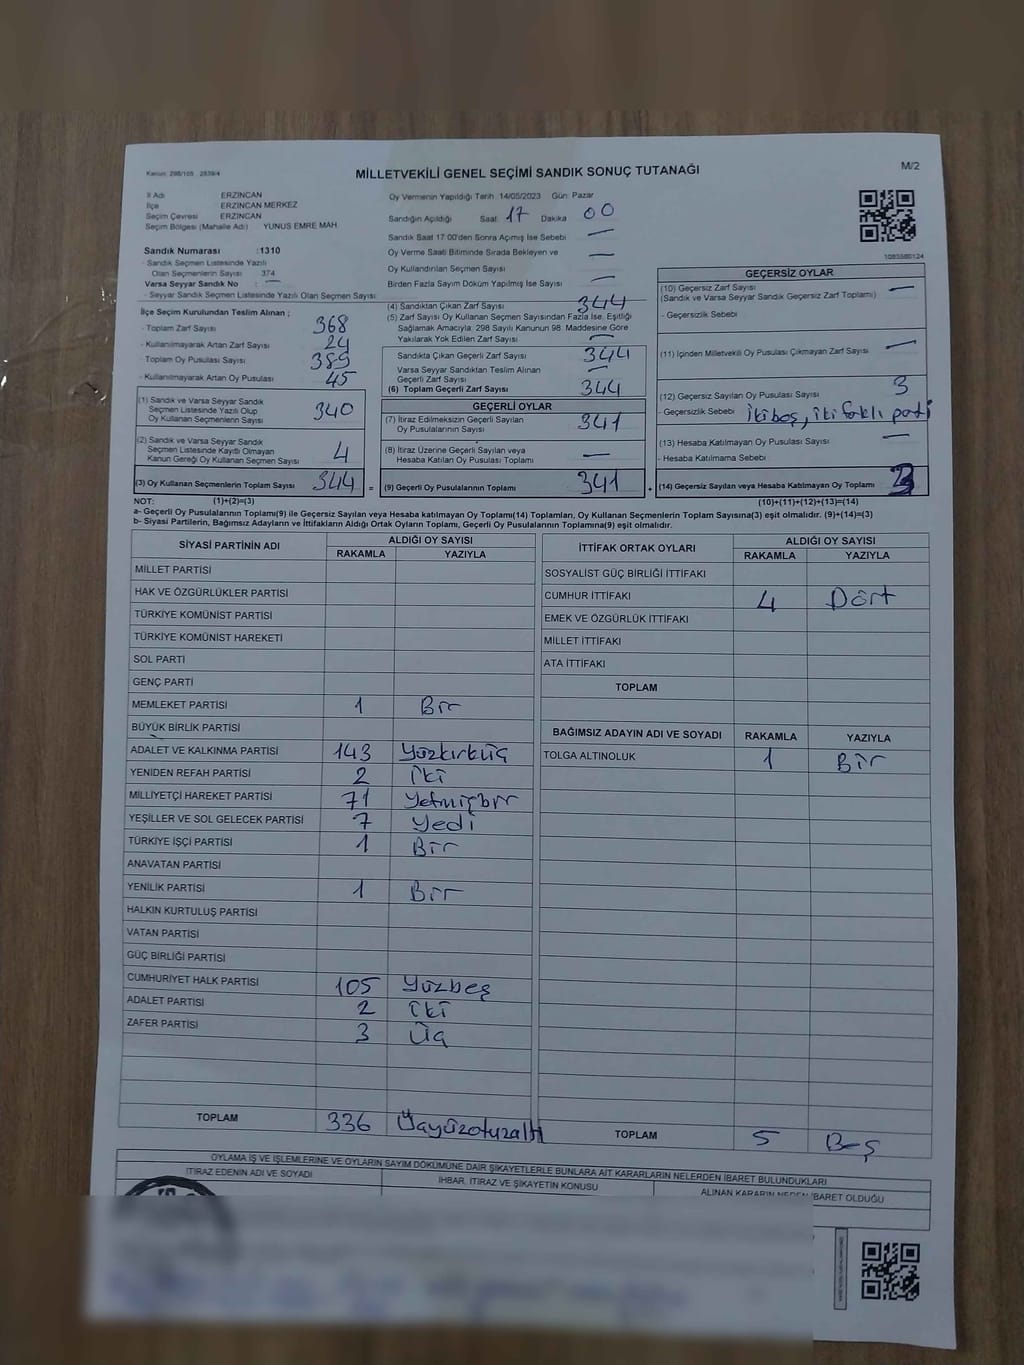 Kanun: 298/105 2839/4
MİLLETVEKİLİ GENEL SEÇİMİ SANDIK SONUÇ TUTANAĞI
M/2
İl Adı ERZİNCAN
İlçe ERZİNCAN MERKEZ
Seçim Çevresi ERZİNCAN
Seçim Bölgesi (Mahalle Adı) YUNUS EMRE MAH.
Sandık Numarası :1310
- Sandık Seçmen Listesinde Yazılı
Olan Seçmenlerin Sayısı 374
Varsa Seyyar Sandık No : —
- Seyyar Sandık Seçmen Listesinde Yazılı Olan Seçmen Sayısı
İlçe Seçim Kurulundan Teslim Alınan ;
- Toplam Zarf Sayısı 368
- Kullanılmayarak Artan Zarf Sayısı 24
- Toplam Oy Pusulası Sayısı 389
- Kullanılmayarak Artan Oy Pusulası 45
(1) Sandık ve Varsa Seyyar Sandık
Seçmen Listesinde Yazılı Olup
Oy Kullanan Seçmenlerin Sayısı 340
(2) Sandık ve Varsa Seyyar Sandık
Seçmen Listesinde Kayıtlı Olmayan
Kanun Gereği Oy Kullanan Seçmen Sayısı 4
(3) Oy Kullanan Seçmenlerin Toplam Sayısı 344 =
Oy Vermenin Yapıldığı Tarih :14/05/2023 Gün: Pazar
Sandığın Açıldığı Saat 17 Dakika 00
Sandık Saat 17:00'den Sonra Açımış İse Sebebi —
Oy Verme Saati Bitiminde Sırada Bekleyen ve —
Oy Kullandırılan Seçmen Sayısı —
Birden Fazla Sayım Döküm Yapılmış İse Sayısı —
(4) Sandıktan Çıkan Zarf Sayısı 344
(5) Zarf Sayısı Oy Kullanan Seçmen Sayısından Fazla İse, Eşitliği
Sağlamak Amacıyla; 298 Sayılı Kanunun 98. Maddesine Göre
Yakılarak Yok Edilen Zarf Sayısı —
Sandıkta Çıkan Geçerli Zarf Sayısı 344
Varsa Seyyar Sandıktan Teslim Alınan
Geçerli Zarf Sayısı —
(6) Toplam Geçerli Zarf Sayısı 344
GEÇERLİ OYLAR
(7) İtiraz Edilmeksizin Geçerli Sayılan
Oy Pusulalarının Sayısı 341
(8) İtiraz Üzerine Geçerli Sayılan veya
Hesaba Katılan Oy Pusulası Toplamı —
(9) Geçerli Oy Pusulalarının Toplamı 341 +
1083580124
GEÇERSİZ OYLAR
(10) Geçersiz Zarf Sayısı —
(Sandık ve Varsa Seyyar Sandık Geçersiz Zarf Toplamı)
- Geçersizlik Sebebi
(11) İçinden Milletvekili Oy Pusulası Çıkmayan Zarf Sayısı —
(12) Geçersiz Sayılan Oy Pusulası Sayısı 3
- Geçersizlik Sebebi İki boş, iki farklı parti
(13) Hesaba Katılmayan Oy Pusulası Sayısı —
- Hesaba Katılmama Sebebi
(14) Geçersiz Sayılan veya Hesaba Katılmayan Oy Toplamı 3
NOT: (1)+(2)=(3) (10)+(11)+(12)+(13)=(14)
a- Geçerli Oy Pusulalarının Toplamı(9) ile Geçersiz Sayılan veya Hesaba katılmayan Oy Toplamı(14) Toplamları, Oy Kullanan Seçmenlerin Toplam Sayısına(3) eşit olmalıdır. (9)+(14)=(3)
b- Siyasi Partilerin, Bağımsız Adayların ve İttifakların Aldığı Ortak Oyların Toplamı, Geçerli Oy Pusulalarının Toplamına(9) eşit olmalıdır.
SİYASİ PARTİNİN ADI ALDIĞI OY SAYISI
RAKAMLA YAZIYLA
MİLLET PARTİSİ
HAK VE ÖZGÜRLÜKLER PARTİSİ
TÜRKİYE KOMÜNİST PARTİSİ
TÜRKİYE KOMÜNİST HAREKETİ
SOL PARTİ
GENÇ PARTİ
MEMLEKET PARTİSİ 1 Bir
BÜYÜK BİRLİK PARTİSİ
ADALET VE KALKINMA PARTİSİ 143 Yüzkırküç
YENİDEN REFAH PARTİSİ 2 İki
MİLLİYETÇİ HAREKET PARTİSİ 71 Yetmişbir
YEŞİLLER VE SOL GELECEK PARTİSİ 7 Yedi
TÜRKİYE İŞÇİ PARTİSİ 1 Bir
ANAVATAN PARTİSİ
YENİLİK PARTİSİ 1 Bir
HALKIN KURTULUŞ PARTİSİ
VATAN PARTİSİ
GÜÇ BİRLİĞİ PARTİSİ
CUMHURİYET HALK PARTİSİ 105 Yüzbeş
ADALET PARTİSİ 2 İki
ZAFER PARTİSİ 3 Üç
TOPLAM 336 Üçyüzotuzaltı
İTTİFAK ORTAK OYLARI ALDIĞI OY SAYISI
RAKAMLA YAZIYLA
SOSYALİST GÜÇ BİRLİĞİ İTTİFAKI
CUMHUR İTTİFAKI 4 Dört
EMEK VE ÖZGÜRLÜK İTTİFAKI
MİLLET İTTİFAKI
ATA İTTİFAKI
TOPLAM
BAĞIMSIZ ADAYIN ADI VE SOYADI RAKAMLA YAZIYLA
TOLGA ALTINOLUK 1 Bir
TOPLAM 5 Beş
OYLAMA İŞ VE İŞLEMLERİNE VE OYLARIN SAYIM DÖKÜMÜNE DAİR ŞİKAYETLERLE BUNLARA AİT KARARLARIN NELERDEN İBARET BULUNDUKLARI
İTİRAZ EDENİN ADI VE SOYADI İHBAR, İTİRAZ VE ŞİKAYETİN KONUSU ALINAN KARARIN NEDEN İBARET OLDUĞU